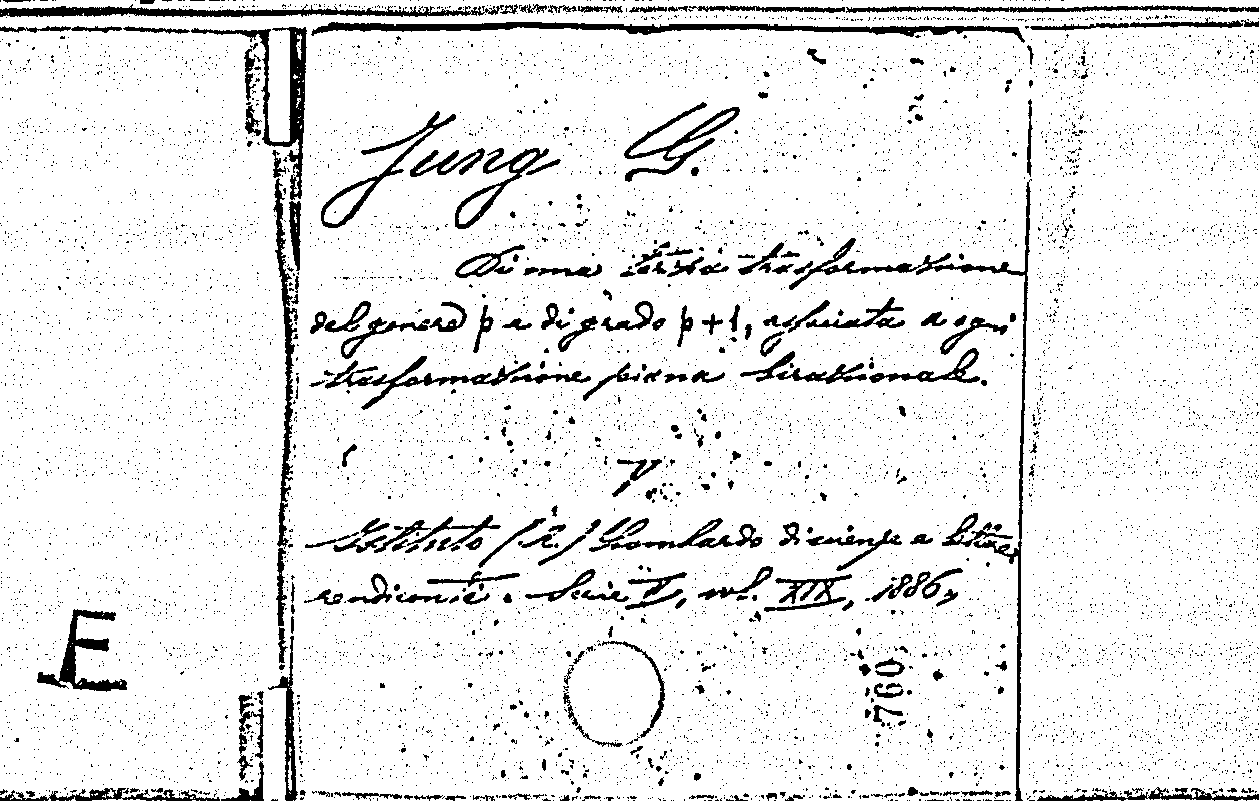 Jung G.
Di una terza trasformazione
del genere p e di grado p+1, associata a ogni
trasformazione piana birazionale.
V
Istituto (R.) Lombardo di scienze e lettere,
rendiconti. Serie II, vol. XIX, 1886,
E
760